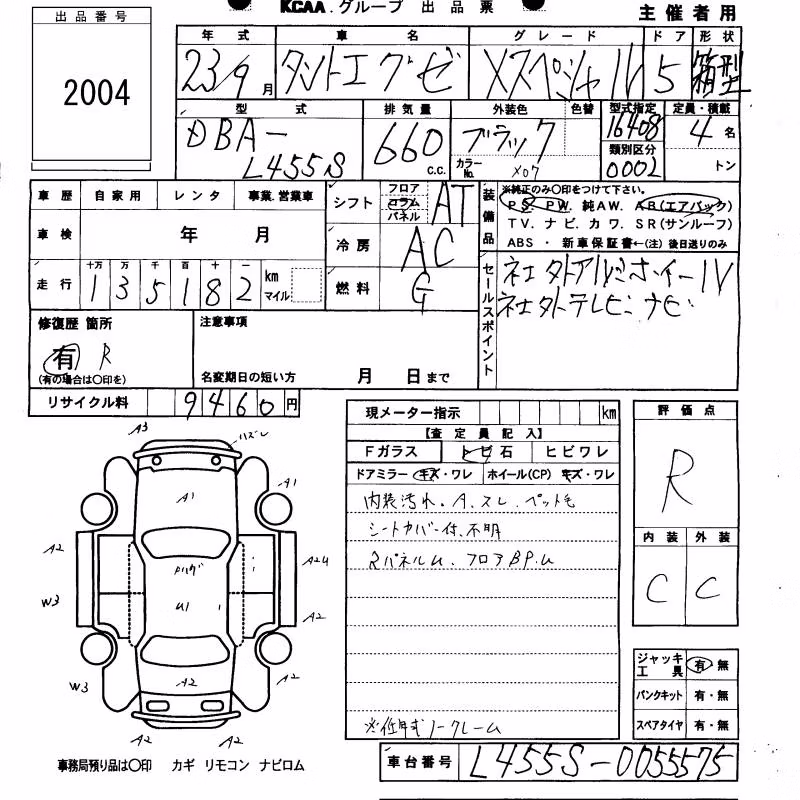 KCAA.グループ 出品票
主催者用
出品番号
2004
年式 車名 グレード ドア 形状
23/9月 タントエグゼ Xスペシャル 5 箱型
型式 排気量 外装色 色替 型式指定 定員・積載
DBA-
L455S
660 c.c.
ブラック
カラーNo. X07
16408
類別区分
0002
4名
トン
車歴 自家用 レンタ 事業.営業車
車検 年 月
走行 十万 万 千 百 十 一
1 3 5 1 8 2 km マイル
シフト フロア コラム パネル AT
冷房 AC
燃料 G
装備品
※純正のみ〇印をつけて下さい。
PS. PW. 純AW. AB(エアバック)
TV. ナビ. カワ. SR(サンルーフ)
ABS ・ 新車保証書←(注) 後日送りのみ
セールスポイント
社外アルミホイール
社外テレビ ナビ
修復歴 箇所
有 R
(有の場合は〇印を)
注意事項
名変期日の短い方 月 日まで
リサイクル料 9460円
現メーター指示 km
【査定員記入】
Fガラス トビ石 ヒビワレ
ドアミラー キズ・ワレ ホイール(CP) キズ・ワレ
内装汚れ.A.スレ.ペット毛
シートカバー付.不明
RパネルU.フロアBP.U
※低年式ノークレーム
評価点
R
内装 外装
C C
ジャッキ
工具 有・無
パンクキット 有・無
スペアタイヤ 有・無
A3
ハズレ
A1
A1
A2
A24
U1
W3
A2
W3
A2
A2
A2 A2
事務局預り品は〇印 カギ リモコン ナビロム
車台番号 L455S-0055575